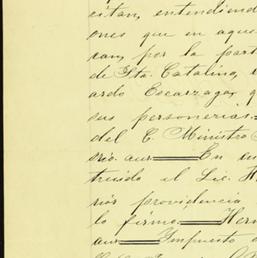 citan, entendiend
ones que en aque
can, por la part
de Sta. Catalina,
ardo Escarzaga, q
sus personerias.
del C. Ministro
rio. aur — En
truido el Lic. H
rior providencia
lo firmo — Her
aur — Impuesto